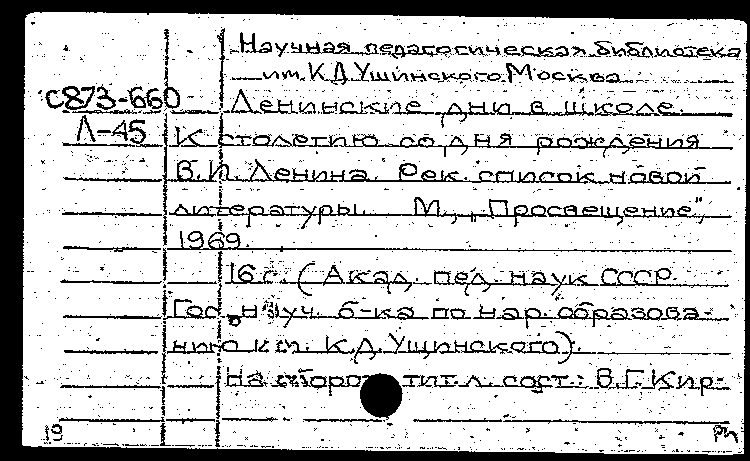 Научная педагогическая библиотека
им. К.Д. Ушинского. Москва
С873-660 Ленинские дни в школе.
Л-45 К столетию со дня рождения
В.И. Ленина. Рек. список новой
литературы. М., „Просвещение",
1969.
16 с. (Акад. пед. наук СССР.
Гос. науч. б-ка по нар. образова-
нию им. К.Д. Ушинского).
На оборот. тит. л. сост.: В.Г. Кир-
19